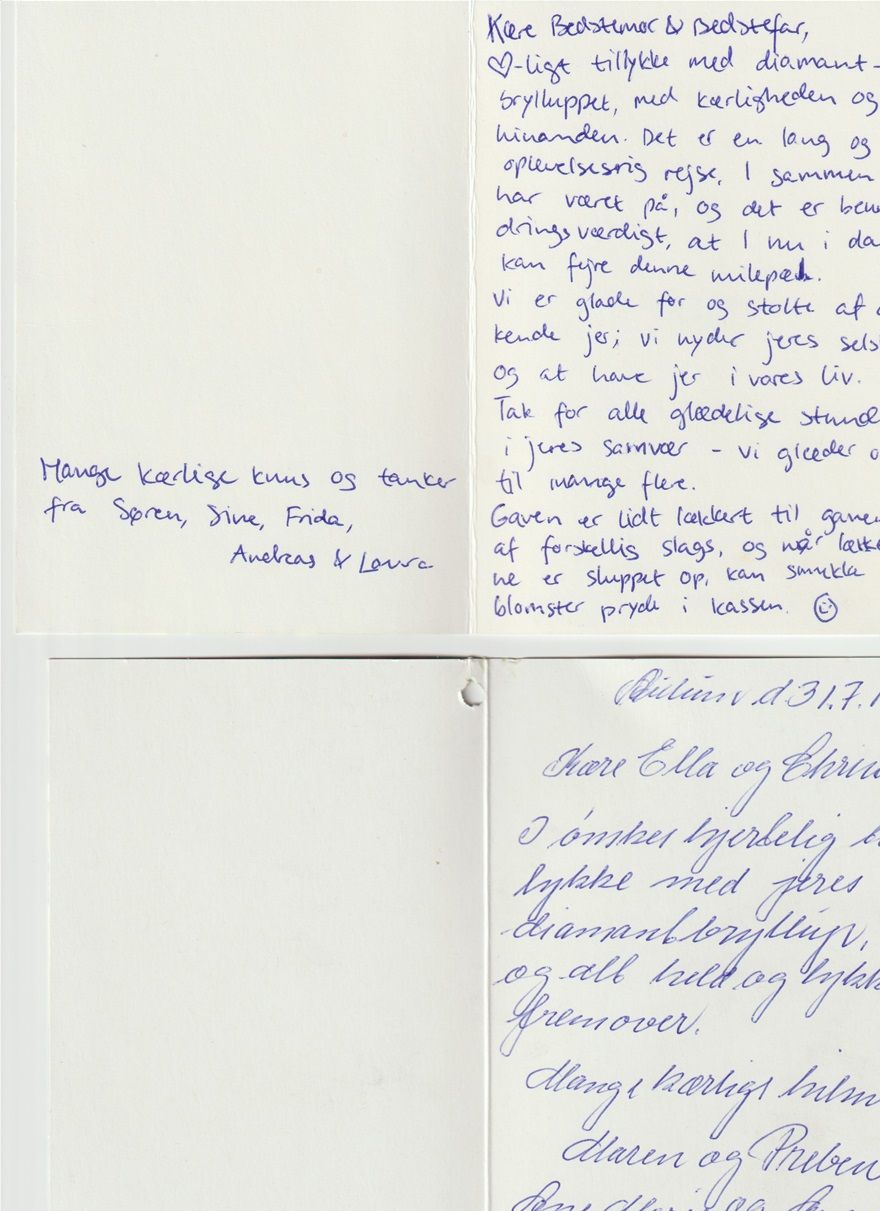 Kære Bedstemor & Bedstefar,
♡-ligt tillykke med diamant-
brylluppet, med kærligheden og
hinanden. Det er en lang og
oplevelsesrig rejse, I sammen
har været på, og det er beun
dringsværdigt, at I nu i da
kan fejre denne milepæl.
Vi er glade for og stolte af
kende jer; vi nyder jeres selsk
og at have jer i vores liv.
Tak for alle glædelige stund
i jeres samvær – vi glæder o
til mange flere.
Gaven er lidt lækkert til ganen
af forskellig slags, og når lækk
ne er sluppet op, kan smukke
blomster pryde i kassen. ☺
Mange kærlige knus og tanker
fra Søren, Sine, Frida,
Andreas & Laura
d. 31.7.1
Kære Ella og Chris
I ønskes hjertelig t
lykke med jeres
diamantbryllup,
og alt held og lykk
fremover.
Mange kærlige hilsn
Maren og Preben